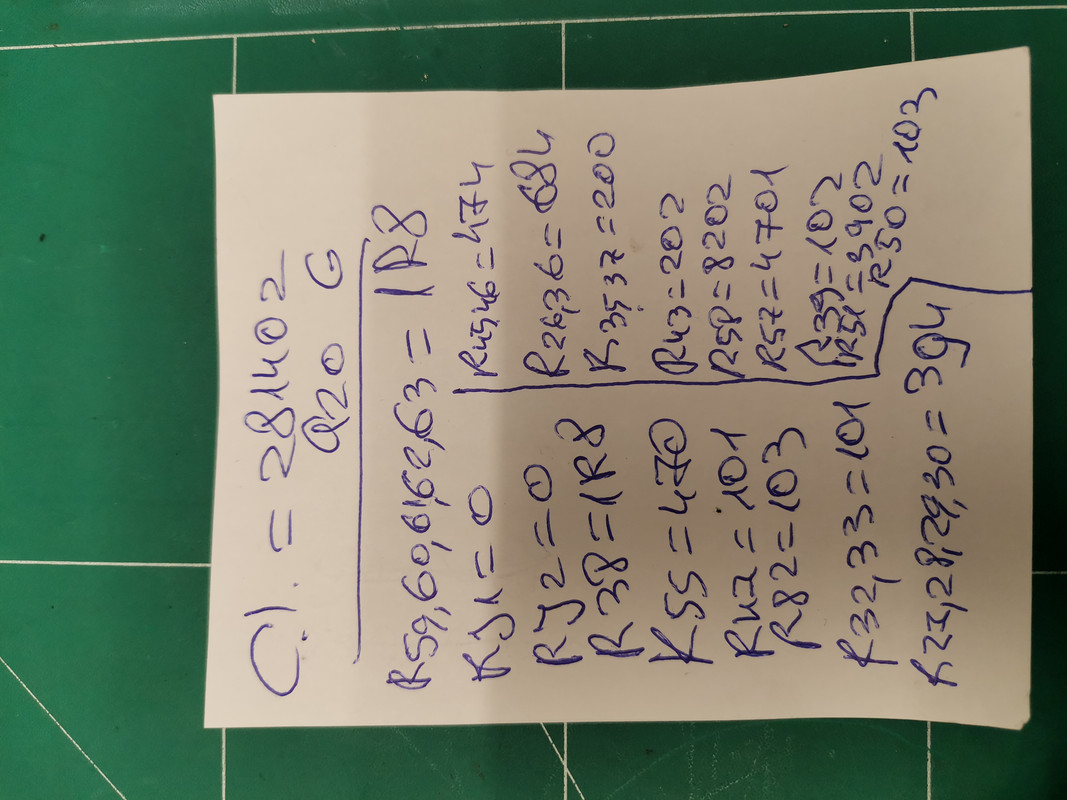 C.I. = 281402
Q20 G
R59,60,61,62,63 = 1R8
RJ1 = 0
RJ2 = 0
R38 = 1R8
R55 = 470
R47 = 101
R82 = 103
R32,33 = 101
R25,28,29,30 = 394
R45,46 = 474
R26,36 = 684
R35,37 = 200
R43 = 202
R58 = 8202
R57 = 4701
R39 = 102
R51 = 3902
R50 = 103